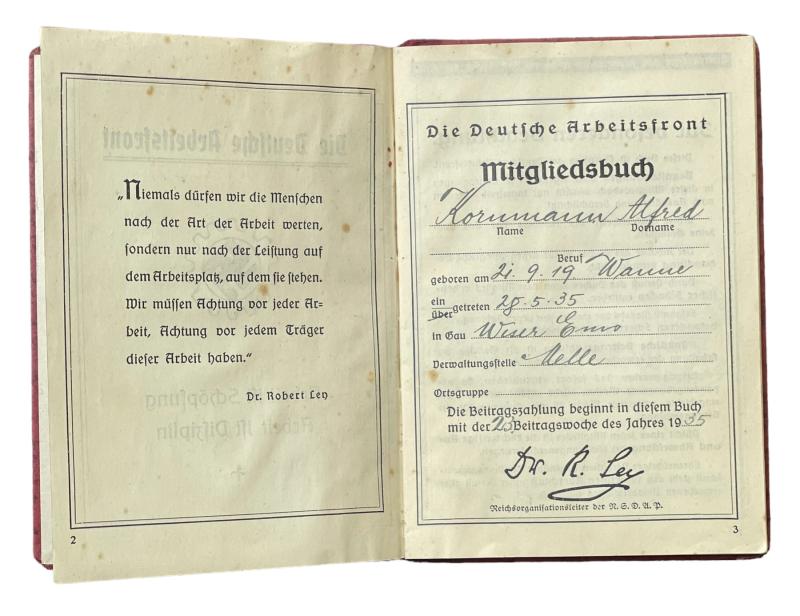 „Niemals dürfen wir die Menschen
nach der Art der Arbeit werten,
sondern nur nach der Leistung auf
dem Arbeitsplatz, auf dem sie stehen.
Wir müssen Achtung vor jeder Ar-
beit, Achtung vor jedem Träger
dieser Arbeit haben.“
Dr. Robert Ley
2
Die Deutsche Arbeitsfront
Mitgliedsbuch
Kornmann Alfred
Name Vorname
Beruf
geboren am 21. 9. 19 Wanne
ein
über getreten 28. 5. 35
in Gau Weser Ems
Verwaltungsstelle Melle
Ortsgruppe
Die Beitragszahlung beginnt in diesem Buch
mit der 23 Beitragswoche des Jahres 1935
Dr. R. Ley
Reichsorganisationsleiter der N. S. D. A. P.
3